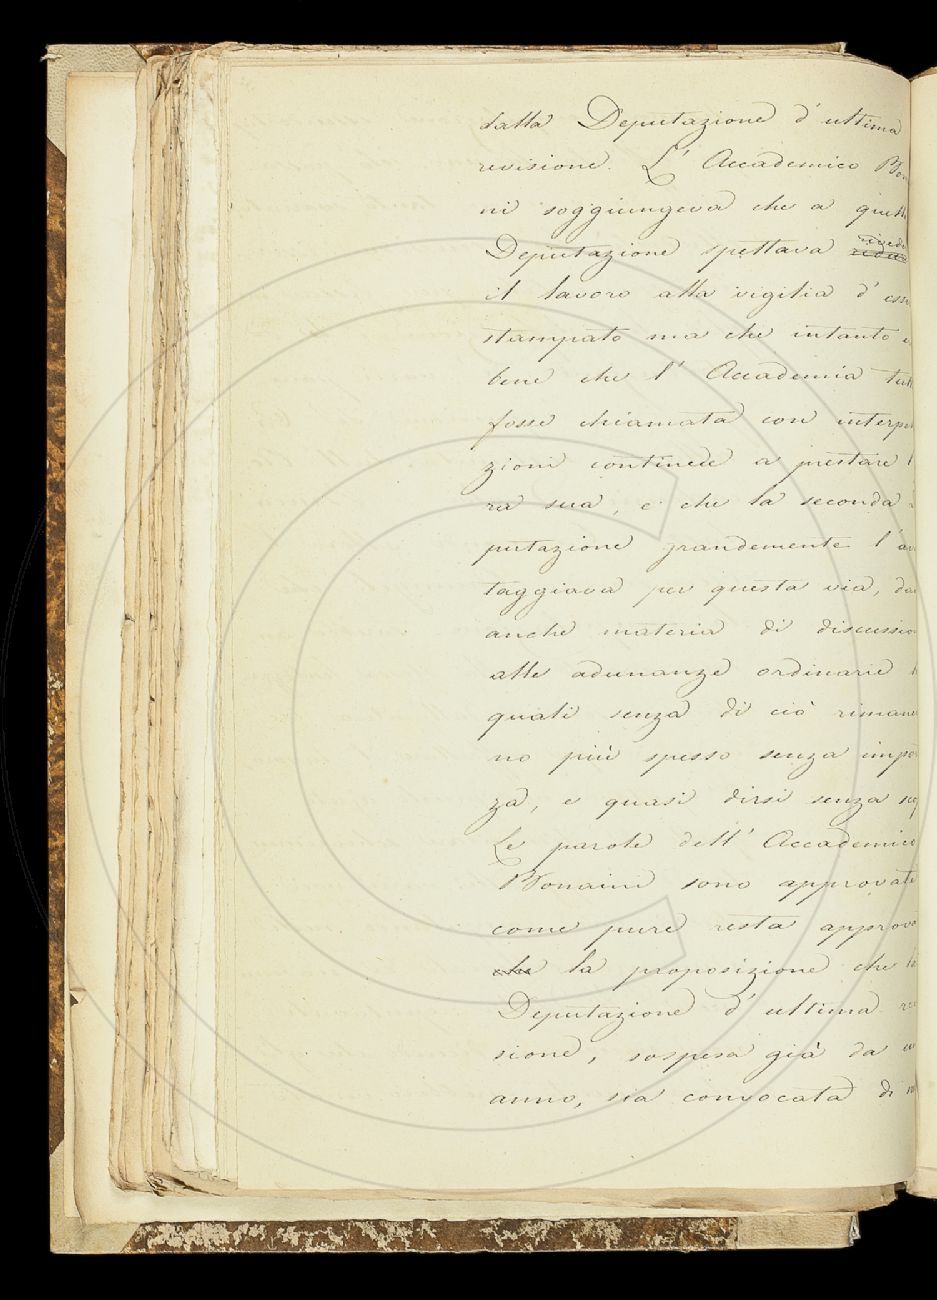 dalla Deputazione d' ultima
revisione. L' Accademico Bon
ni soggiungeva che a quest
Deputazione spettava rivede
il lavoro alla vigilia d' ess
stampato ma che intanto e
bene che l' Accademia tut
fosse chiamata con interpo
zioni continue a prestare l
ra sua, e che la seconda
putazione grandemente l' av
taggiava per questa via, da
anche materia di discussio
alle adunanze ordinarie l
quali senza di ciò rimane
no più spesso senza impo
za, e quasi dirsi senza sc
Le parole dell' Accademico
Bonaini sono approvate
come pure resta approva
che la proposizione che la
Deputazione d' ultima re
sione, sospesa già da u
anno, sia convocata di n